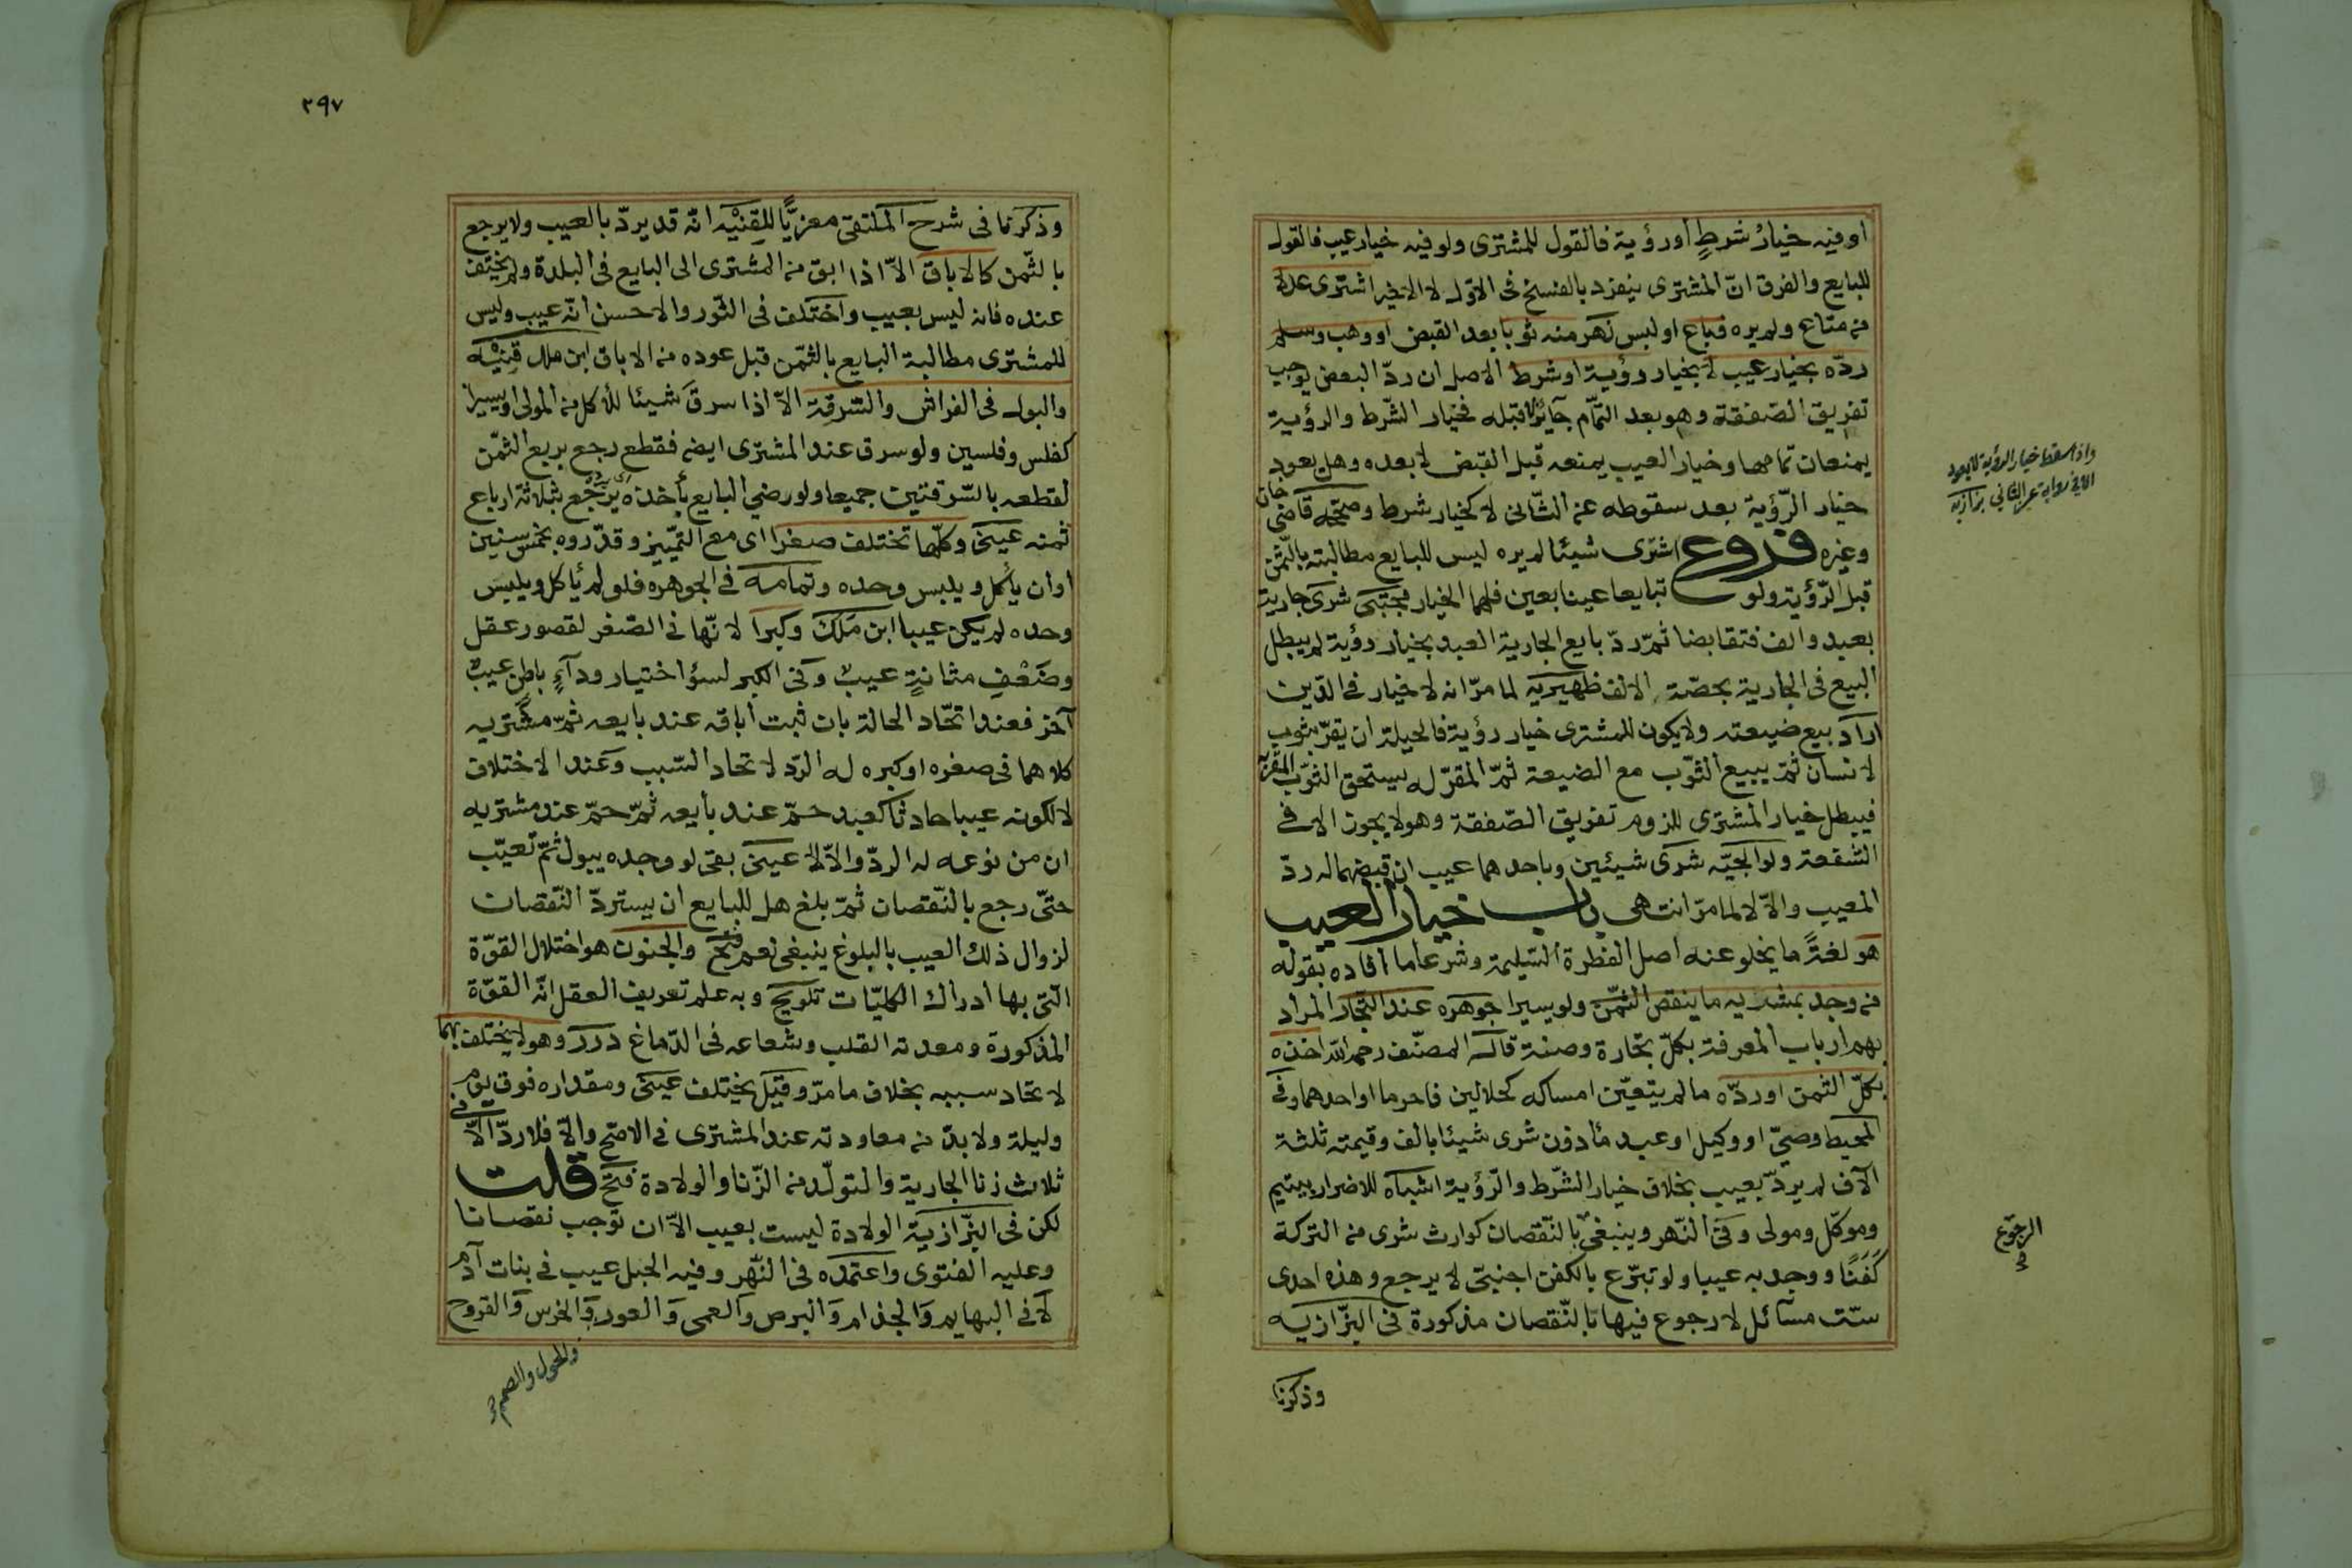 او فيه خيارُ شرطٍ أو رؤية فالقول للمشترى ولو فيه خيار عيب فالقول
للبايع والفرق انّ المشترى ينفرد بالفسخ فى الاوّل لا الاخير اشترى عدلا
من متاع ولم يره فباع او لبس نهر منه ثوبا بعد القبض او وهب وسلم
ردّه بخيار عيب لا بخيار رؤية او شرط الاصل ان ردّ البعض يوجب
تفريق الصّفقة وهو بعد التّمام جآئز لا قبله فخيار الشّرط والرؤية
يمنعان تمامها وخيار العيب يمنعه قبل القبض لا بعده وهل يعود
خيار الرّؤية بعد سقوطه عن الثّانى لا كخيار شرط وصحّحه قاضى خان
وغيره فروع اشترى شيئا لم يره ليس للبايع مطالبته بالثّمن
قبل الرّؤية ولو تبايعا عينا بعين فلهما الخيار مجتبى شرى جارية
بعبد والف فتقابضا ثمّ ردّ بايع الجارية العبد بخيار رؤية لم يبطل
البيع فى الجارية بحصّة الالف ظهيريه لما مرّ انه لا خيار فى الدّين
اراد بيع ضيعته ولا يكون للمشترى خيار رؤية فالحيلة ان يقرّ بثوب
لانسان ثمّ يبيع الثّوب مع الضيعة ثمّ المقرّ له يستحق الثّوب المقرّ به
فيبطل خيار المشترى للزوم تفريق الصّفقة وهو لا يجوز الا فى
الشّفعة ولوالجيّه شرى شيئين وباحدهما عيب ان قبضهما له ردّ
المعيب والّا لا لما مرّ انتهى باب خيار العيب
هو لغةً ما يخلو عنه اصل الفطرة السّليمة وشرعا ما افاده بقوله
من وجد بمشريه ما ينقص الثّمن ولو يسيرا جوهره عند التجّار المراد
بهم ارباب المعرفة بكلّ تجارة وصنعة قاله المصنّف رحمه الله اخذه
بكلّ الثمن او ردّه ما لم يتعيّن امساكه كحلالين فاحرما او احدهما وفى
المحيط وصيّ او وكيل او عبد مأذون شرى شيئا بالف وقيمته ثلثة
الآف لم يردّ بعيب بخلاف خيار الشّرط والرّؤية اشباه للاضرار بيتيم
وموكّل ومولى وفى النّهر وينبغى بالنّقصان كوارث شرى من التركة
كَفَنًا ووجد به عيبا ولو تبرّع بالكفن اجنبيّ لا يرجع وهذه احدى
ستّ مسآئل لا رجوع فيها بالنّقصان مذكورة فى البزّازيه
وذكرنا
واذا سقط خيار الرؤية لا يعود
الا فى رواية عن الثانى بزازيه
الرجوع
٢٩٧
وذكرنا فى شرح الملتقى معزيًّا للقنيه انّه قد يردّ بالعيب ولا يرجع
بالثّمن كالاباق الّا اذا ابق من المشترى الى البايع فى البلدة ولم يختف
عنده فانه ليس بعيب واختلف فى الثّور والاحسن انّه عيب وليس
للمشترى مطالبة البايع بالثّمن قبل عوده من الاباق ابن ملك قنيه
والبول فى الفراش والسّرقة الّا اذا سرق شيئا للأكل من المولى او يسيرا
كفلس وفلسين ولو سرق عند المشترى ايضه فقطع رجع بربع الثمّن
لقطعه بالسّرقتين جميعا ولو رضي البايع بأخذه يرجع بثلاثة ارباع
ثمنه عينى وكلّها تختلف صغرا اى مع التّمييز وقدّروه بخمس سنين
او أن يأكل ويلبس وحده وتمامه فى الجوهره فلو لم يأكل ويلبس
وحده لم يكن عيبا ابن مَلَك وكبرا لانّها فى الصّغر لقصور عقل
وضَعْفِ مثانةٍ عيبٌ وفى الكبر لسؤ اختيار ودآءٍ باطن عيبٌ
آخر فعند اتّحاد الحالة بان ثبت أباقه عند بايعه ثمّ مشتريه
كلاهما فى صغره او كبره له الردّ لاتحاد السّبب وعند الاختلاف
لا لكونه عيبا حادثا كعبد حمّ عند بايعه ثمّ حمّ عند مشتريه
ان من نوعه له الردّ والّا لا عينى بقى لو وجده يبول ثمّ تعيّب
حتّى رجع بالنّقصان ثمّ بلغ هل للبايع ان يستردّ النّقصان
لزوال ذلك العيب بالبلوغ ينبغى نعم فتح والجنون هو اختلال القوّة
الّتى بها أدراك الكليّات تلويح وبه علم تعريف العقل انّه القوّة
المذكورة ومعدنه القلب وشعاعه فى الدّماغ درر وهو لا يختلف بهما
لاتحاد سببه بخلاف ما مرّ وقيل يختلف عينى ومقداره فوق يوم
وليلة ولا بدّ من معاودته عند المشترى فى الاصّح والّا فلا ردّ الّا فى
ثلاث زنا الجارية والتولّد من الزّنا والولادة فتح قلت
لكن فى البزّازيّة الولادة ليست بعيب الّا ان توجب نقصانا
وعليه الفتوى واعتمده فى النّهر وفيه الحبل عيب فى بنات آدم
لا فى البهايم والجذام والبرص والعمى والعور والخرس والقروح
والحول والصمم